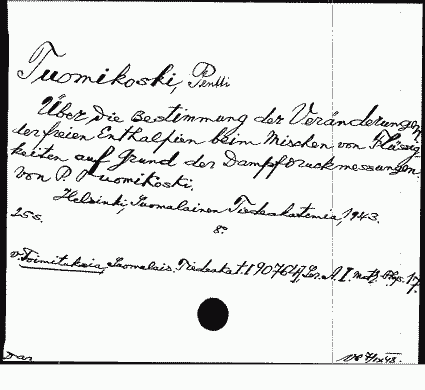 Tuomikoski, Pentti
Über die Bestimmung der Veränderungen
der freien Enthalpien beim Mischen von Flüssig-
keiten auf Grund der Dampfdruckmessungen.
von P. Tuomikoski.
Helsinki, Suomalainen Tiedeakatemia, 1943.
25 s. 8:
v. Toimituksia, Suomalais. Tiedeakat. Ser. A. I. math.-phys. 17.